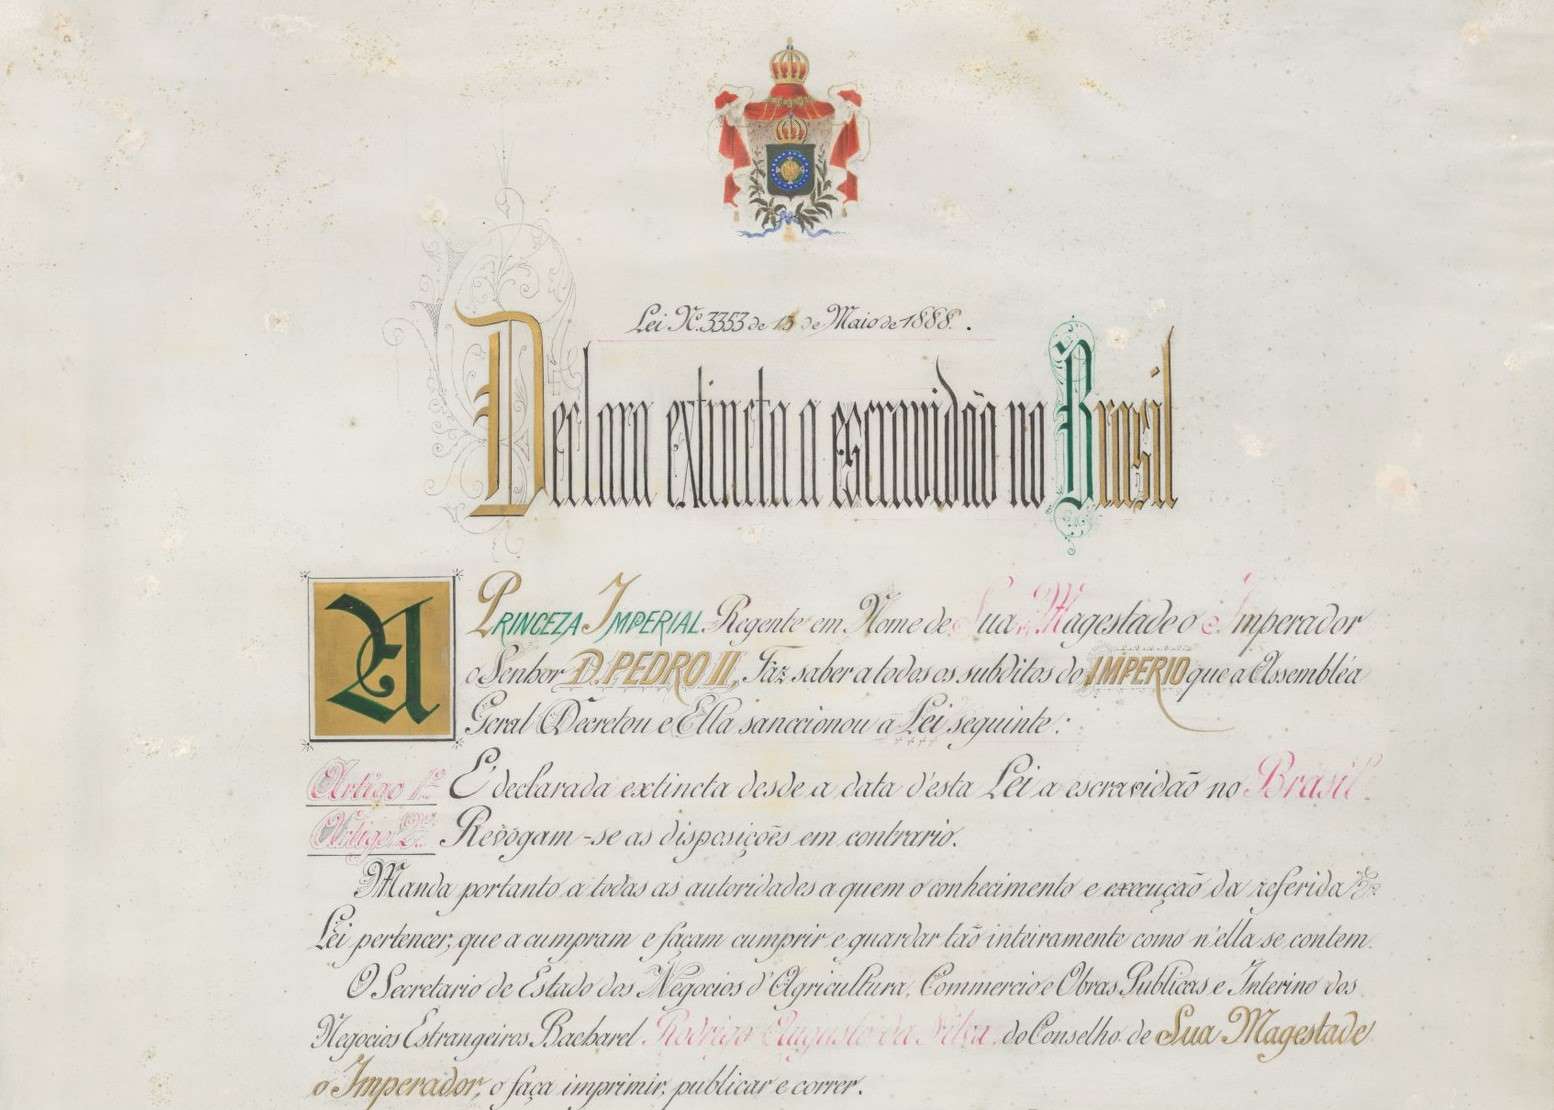 Lei Nº 3353 de 13 de Maio de 1888.
Declara extincta a escravidão no Brasil
A PRINCEZA IMPERIAL Regente em Nome de Sua Magestade o Imperador
o Senhor D. PEDRO II, Faz saber a todos os subditos do IMPERIO que a Assembléa
Geral Decretou e Ella sanccionou a Lei seguinte:
Artigo 1º É declarada extincta desde a data d'esta Lei a escravidão no Brasil.
Artigo 2º Revogam-se as disposições em contrario.
Manda portanto a todas as autoridades a quem o conhecimento e execução da referida
Lei pertencer, que a cumpram e façam cumprir e guardar tão inteiramente como n'ella se contem.
O Secretario de Estado dos Negocios d'Agricultura, Commercio e Obras Publicas e Interino dos
Negocios Estrangeiros Bacharel Rodrigo Augusto da Silva, do Conselho de Sua Magestade
o Imperador, o faça imprimir, publicar e correr.